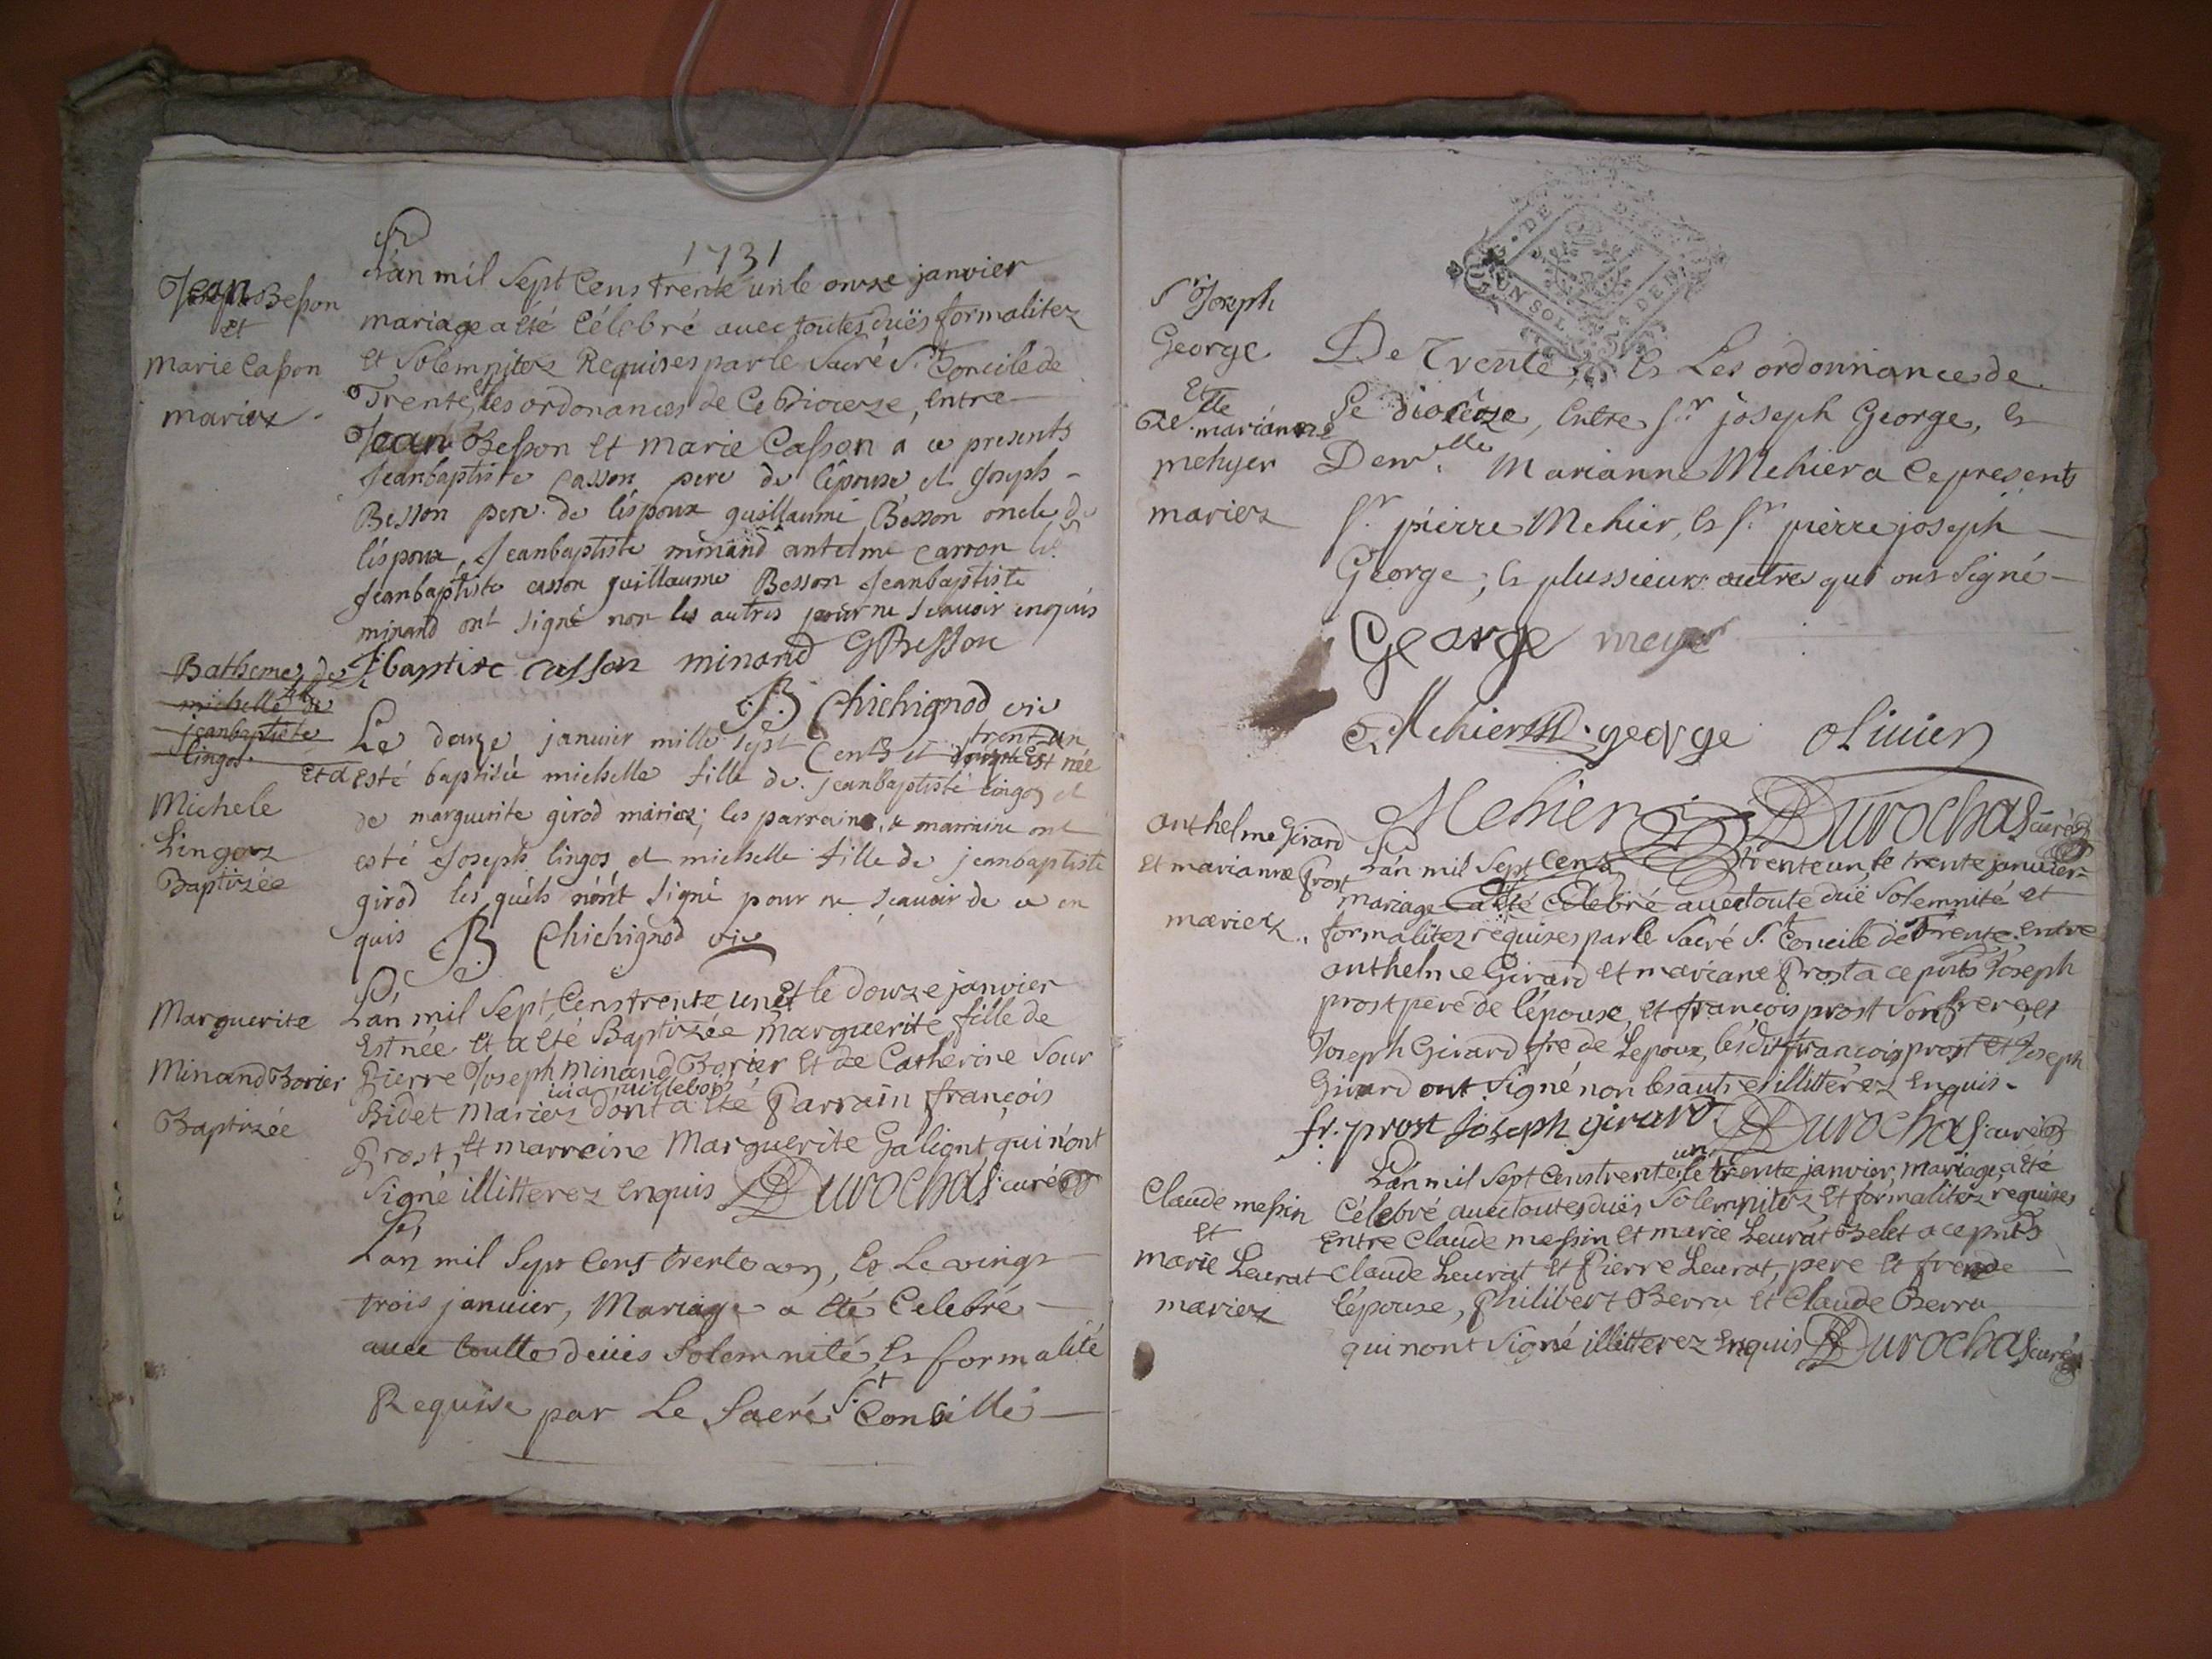 1731
Jean Besson
et
Marie Casson
mariez
L'an mil Sept Cens trente un le onze janvier
mariage a eté Célebré avec toutes duës formalitez
et Solemnitez Requises par le Sacré St. Concile de
Trente, et les ordonances de Ce Dioceze, entre
Jean Besson et Marie Casson a ce presents
Jeanbaptiste Casson pere de l'épouse et Joseph
Besson pere de l'époux guillaume Besson oncle de
l'époux, Jeanbaptiste minand antelme carron
Jeanbaptiste casson guillaume Besson Jeanbaptiste
minand ont signé non les autres pour ne scavoir enquis
J baptise casson minand GBesson
Chichignod vic
Batheme de
michelle de
jeanbaptiste
lingos
Michele
Lingoz
Baptizée
Le douze janvier mille sept Cents et trent un Est née
et a esté baptisée michelle fille de jeanbaptiste lingos et
de marguerite girod mariez; les parrains & marraine ont
esté Joseph lingos et michelle fille de jeanbaptiste
girod les quels n'ont signé pour ne scavoir de ce en
quis Chichignod vic
Marguerite
Minand Borier
Baptizée
L'an mil Sept Cens trente un et le douze janvier
Est née et a eté Baptizée Marguerite fille de
Pierre Joseph Minand Borier et de Catherine Sour
Bidet Mariez dont a eté Parrain françois
Prost, et marreine Marguerite Galignt qui n'ont
Signé illitterez Enquis Durochas curé
L'an mil Sept Cens trente un, Et Le vingt
trois janvier, Mariage a été Celebré
avec toutte deües Solemnité, Et formalité
Requise par Le Sacré St Concille
UN SOL
Sr Joseph
George
Et
De.lle marianne
mehyer
mariez
De Trente, Et Les ordonnance de
Ce diocèze, Entre Sr joseph George, Et
Dem.lle Marianne Mehier a Ce present
Sr pierre Mehier, Et Sr pierre joseph
George, Et plussieurs autres qui ont Signé
George meyer
Mehier george olivier
Mehier Durochas curé
Anthelme Girard
Et marianne Prost
mariez
L'an mil Sept Cens trente un, le trente janvier
mariage a eté Célebré avec toute duë Solemnité et
formalitez requises par le Sacré St. Concile de Trente. Entre
anthelme Girard et mariane Prost a ce pnts Joseph
prost pere de l'épouse, et françois prost Son frere, et
Joseph Girard fre de Lepoux, lesdit françois prost et Joseph
Girard ont Signé non les autres illitterez Enquis
fr. prost Joseph girard Durochas curé
Claude messin
et
marie Leurat
mariez
L'an mil Sept Cens trente un, le trente janvier, mariage, a eté
Célebré avec toutes duës Solemnitez et formalitez requises
Entre Claude messin et marie Leurat Belet a ce pnts
Claude Leurat et Pierre Leurat, pere et frere de
l'épouse, Philibert Berru et Claude Berru
qui n'ont Signé illitterez Enquis Durochas curé